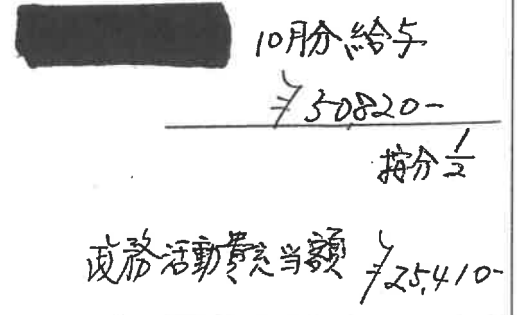 10月分給与
¥50,820-
按分 1/2
政務活動費充当額 ¥25,410-